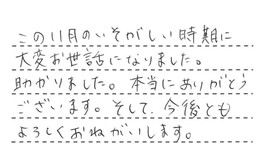 この11月のいそがしい時期に
大変お世話になりました。
助かりました。本当にありがとう
ございます。そして、今後とも
よろしくおねがいします。